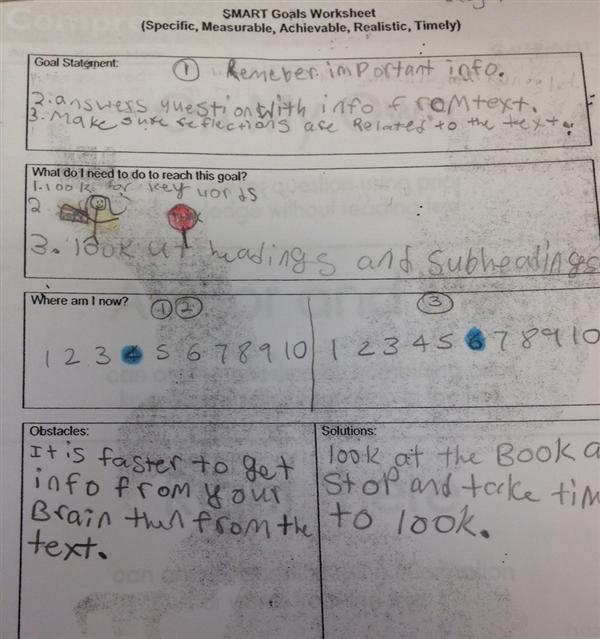 SMART Goals Worksheet
(Specific, Measurable, Achievable, Realistic, Timely)
Goal Statement:
① Remeber important info.
2. answers question with info from text.
3. Make sure reflections are Related to the text.
What do I need to do to reach this goal?
1. look for key words
2
3. look at headings and subheadings
Where am I now?
① ②
1 2 3 4 5 6 7 8 9 10
③
1 2 3 4 5 6 7 8 9 10
Obstacles:
It is faster to get
info from your
Brain then from the
text.
Solutions:
look at the Book a
Stop and take tim
to look.